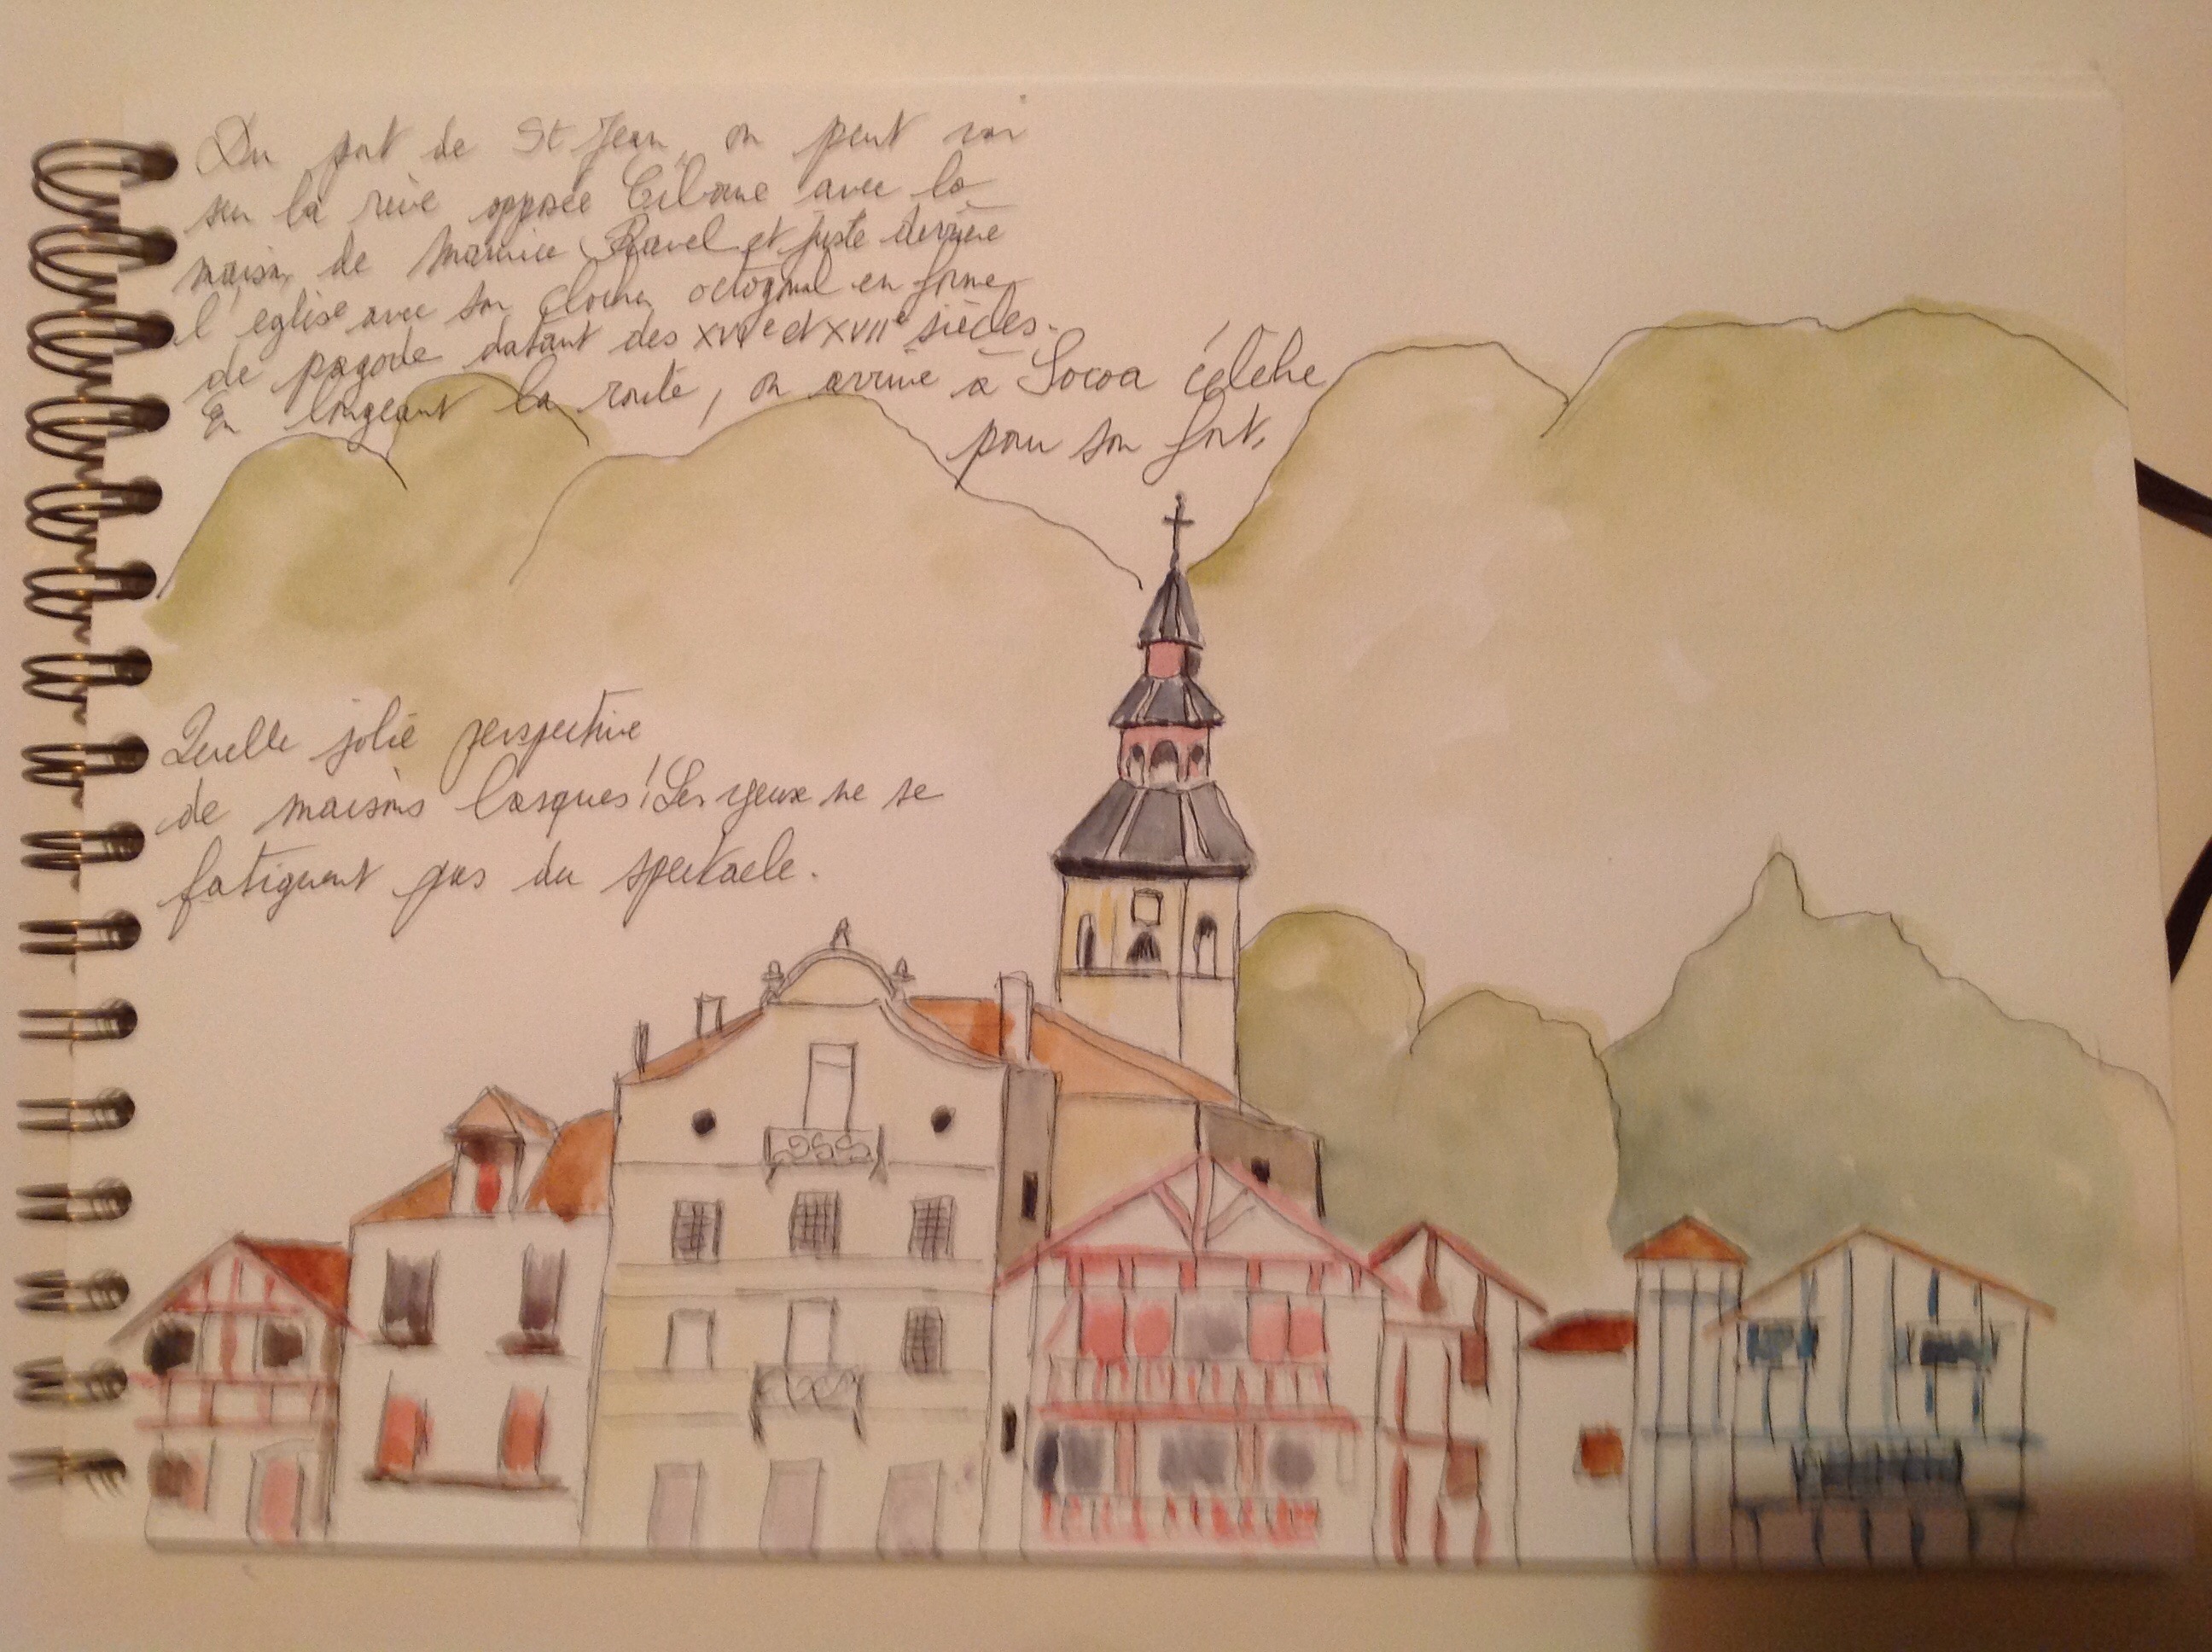 Du port de St Jean, on peut voir
sur la rive opposée Ciboure avec la
maison de Maurice Ravel et juste derrière
l'église avec son clocher octogonal en forme
de pagode datant des XVIe et XVIIe siècles.
En longeant la route, on arrive à Socoa célèbre
pour son fort.
Quelle jolie perspective
de maisons basques! Les yeux ne se
fatiguent pas du spectacle.